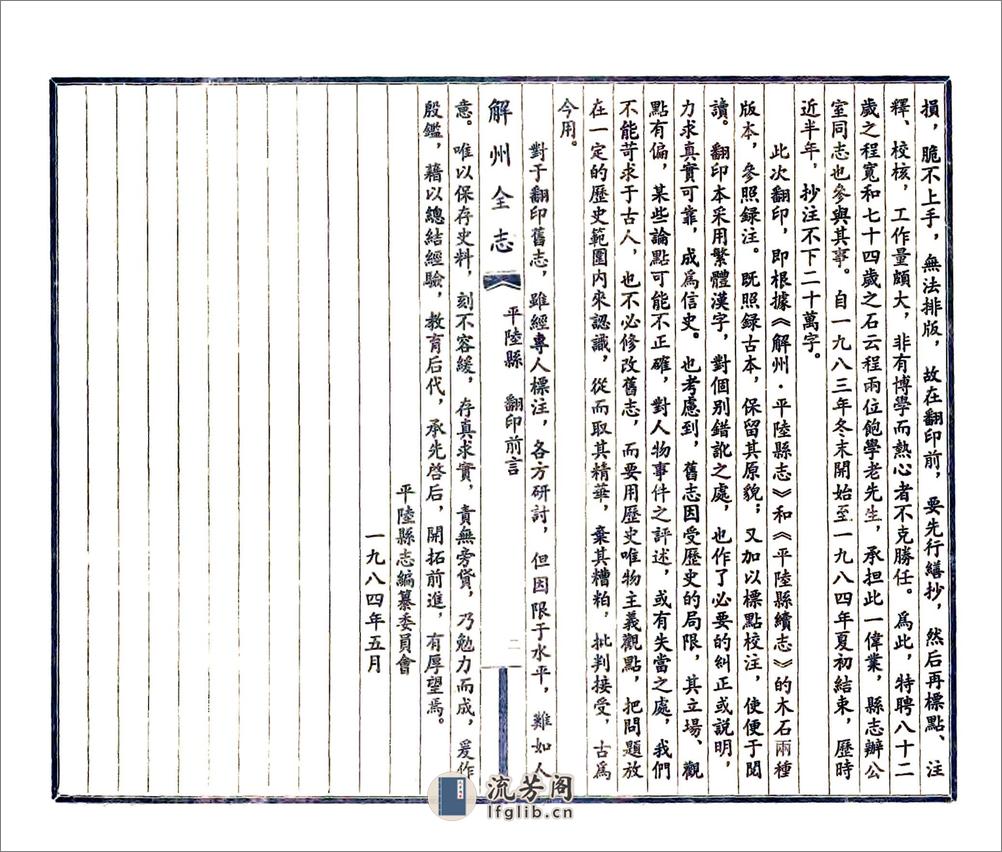 損，脆不上手，無法排版，故在翻印前，要先行繕抄，然后再標點、注
釋、校核，工作量頗大，非有博學而熱心者不克勝任。爲此，特聘八十二
歲之程寬和七十四歲之石云程兩位飽學老先生，承担此一偉業，縣志辦公
室同志也參與其事。自一九八三年冬末開始至一九八四年夏初結束，歷時
近半年，抄注不下二十萬字。
此次翻印，即根據《解州·平陸縣志》和《平陸縣續志》的木石兩種
版本，參照録注。既照録古本，保留其原貌；又加以標點校注，使便于閲
讀。翻印本采用繁體漢字，對個別錯訛之處，也作了必要的糾正或説明，
力求真實可靠，成爲信史。也考慮到，舊志因受歷史的局限，其立場、觀
點有偏，某些論點可能不正確，對人物事件之評述，或有失當之處，我們
不能苛求于古人，也不必修改舊志，而要用歷史唯物主義觀點，把問題放
在一定的歷史範圍内來認識，從而取其精華，棄其糟粕，批判接受，古爲
今用。
對于翻印舊志，雖經專人標注，各方研討，但因限于水平，難如人
解州全志
平陸縣 翻印前言
二
意。唯以保存史料，刻不容緩，存真求實，責無旁貸，乃勉力而成，爰作
殷鑑，藉以總結經驗，教育后代，承先啓后，開拓前進，有厚望焉。
平陸縣志編纂委員會
一九八四年五月
流芳阁
lfglib.cn